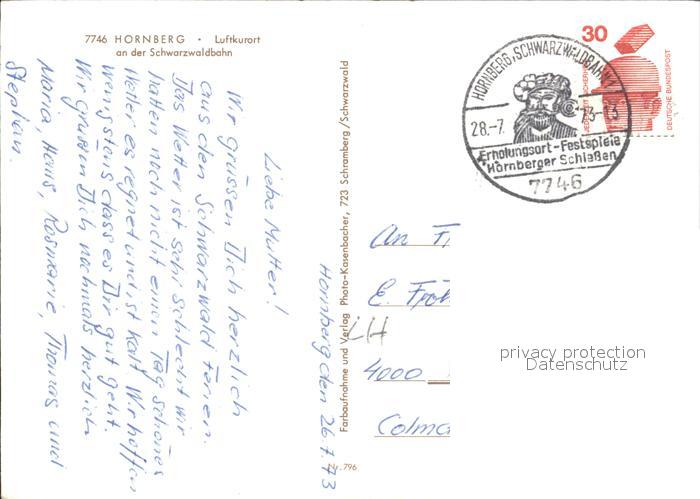 7746 HORNBERG · Luftkurort
an der Schwarzwaldbahn
Hornberg den 26.7.73
Liebe Mutter!
Wir grüssen Dich herzlich
aus den Schwarzwald Ferien.
Das Wetter ist sehr schlecht wir
hatten noch nicht einen Tag schönes
Wetter es regnet und ist kalt Wir hoffen
wenigstens dass es Dir gut geht.
Wir grüssen Dich nochmals herzlich
Maria, Hans, Rosmarie, Thomas und
Stephan.
Farbaufnahme und Verlag Photo-Kasenbacher, 723 Schramberg/Schwarzwald
Nr. 796
HORNBERG, SCHWARZWALDBAHN
28.-7. 73-13
Erholungsort-Festspiele
Hornberger Schießen
7746
30
DEUTSCHE BUNDESPOST
An
E. Fröh
LH
4000
Colma
privacy protection
Datenschutz